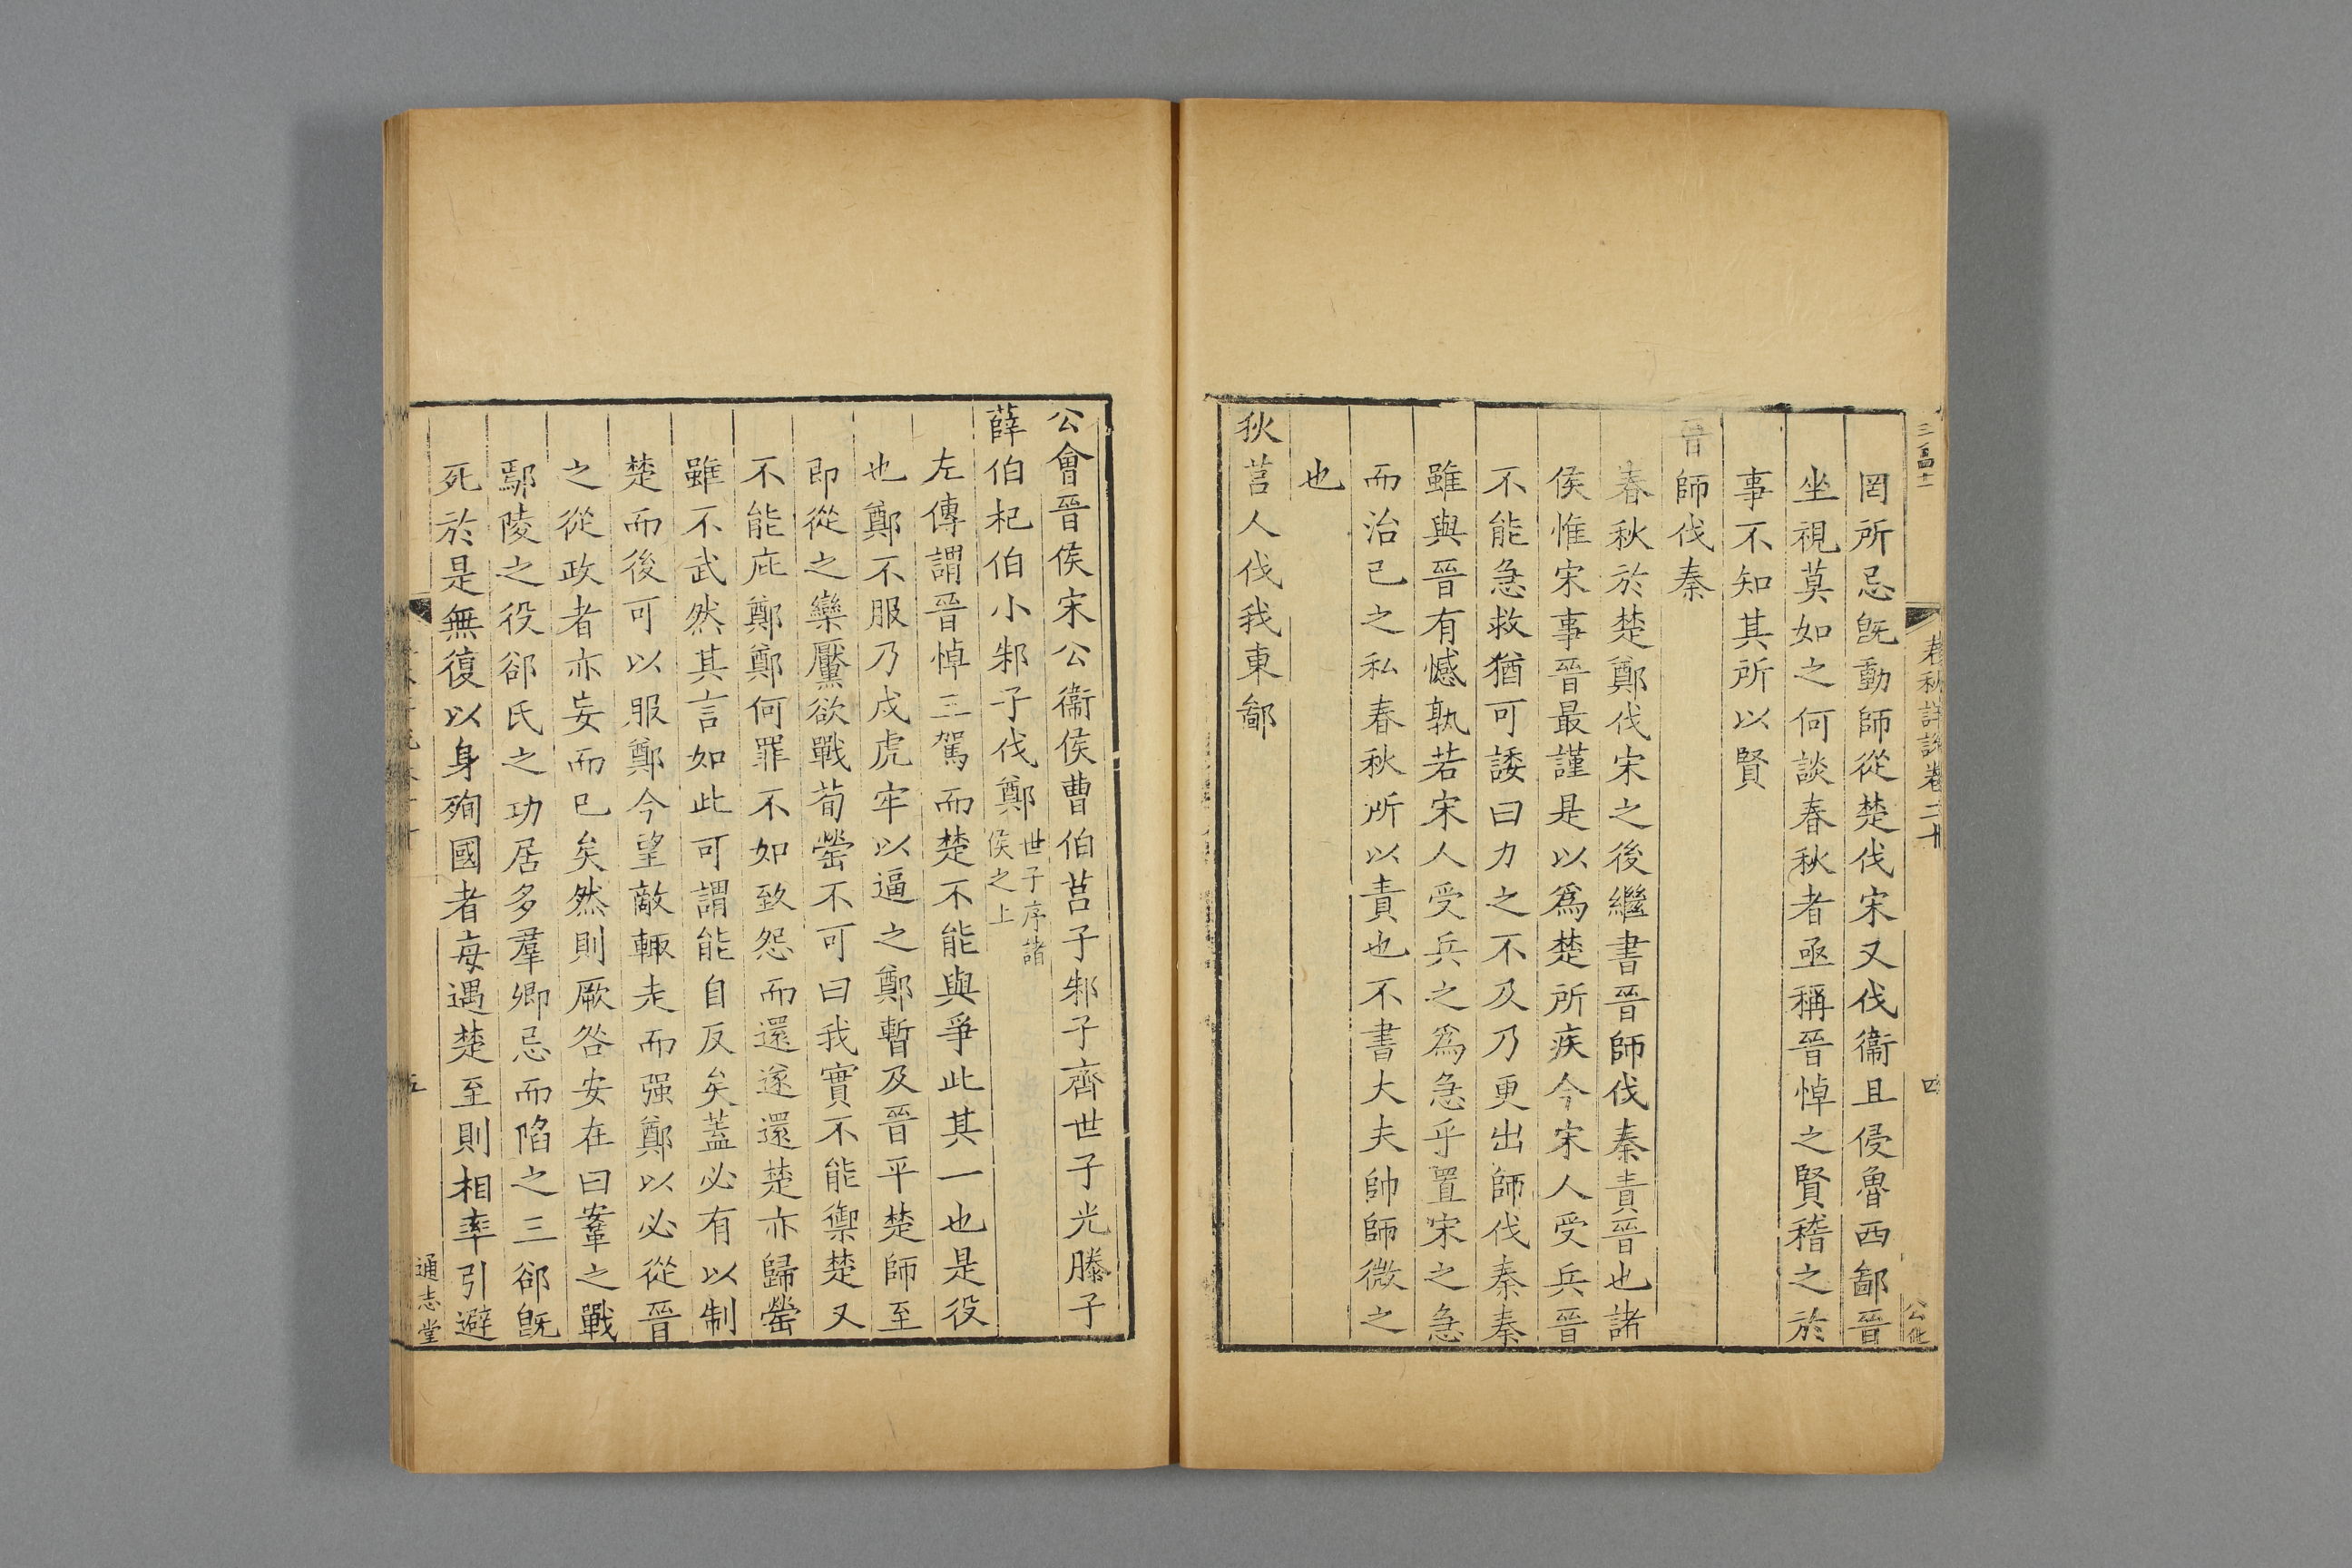 罔所忌旣動師從楚伐宋又伐衞且侵魯西鄙晉
坐視莫如之何談春秋者亟稱晉悼之賢稽之於
事不知其所以賢
晉師伐秦
春秋於楚鄭伐宋之後繼書晉師伐秦責晉也諸
侯惟宋事晉最謹是以爲楚所疾今宋人受兵晉
不能急救猶可諉曰力之不及乃更出師伐秦秦
雖與晉有憾孰若宋人受兵之爲急乎置宋之急
而治已之私春秋所以責也不書大夫帥師微之
也
秋莒人伐我東鄙
公會晉侯宋公衞侯曹伯莒子邾子齊世子光滕子
薛伯杞伯小邾子伐鄭世子序諸侯之上
左傳謂晉悼三駕而楚不能與爭此其一也是役
也鄭不服乃戍虎牢以逼之鄭暫及晉平楚師至
即從之欒黶欲戰荀罃不可曰我實不能禦楚又
不能庇鄭鄭何罪不如致怨而還遂還楚亦歸罃
雖不武然其言如此可謂能自反矣蓋必有以制
楚而後可以服鄭今望敵輒走而强鄭以必從晉
之從政者亦妄而已矣然則厥咎安在曰鞌之戰
鄢陵之役郤氏之功居多羣卿忌而陷之三郤旣
死於是無復以身殉國者每遇楚至則相率引避
春秋詳說卷二十
四
五
通志堂